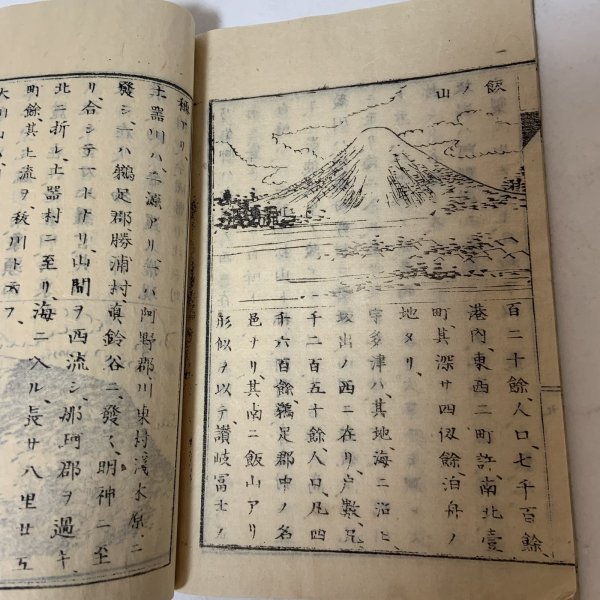 飯ノ山
百二十餘、人口、七千百餘、
港內、東西二町許、南北壹
町、其深サ四仭餘、泊舟ノ
地タリ、
宇多津ハ、其地、海ニ沿ヒ
坂出ノ西ニ在リ、戸數、凡
千二百五十餘、人口、凡四
千六百餘、鵜足郡中ノ名
邑ナリ、其南ニ飯山アリ
形似ヲ以テ讚岐富士ノ
稱アリ、
土器川ハ、
源アリ、一ハ阿野郡川東村
發シ、一ハ鵜足郡勝浦村眞鈴谷ニ、發ス、明神ニ至
リ、合シテ一トナリ、山間ヲ西流シ、那珂郡ヲ過ギ、
北ニ折レ、土器村ニ至リ、海ニ入ル、長サ八里廿五
町餘、其上流ヲ
川ト云フ、